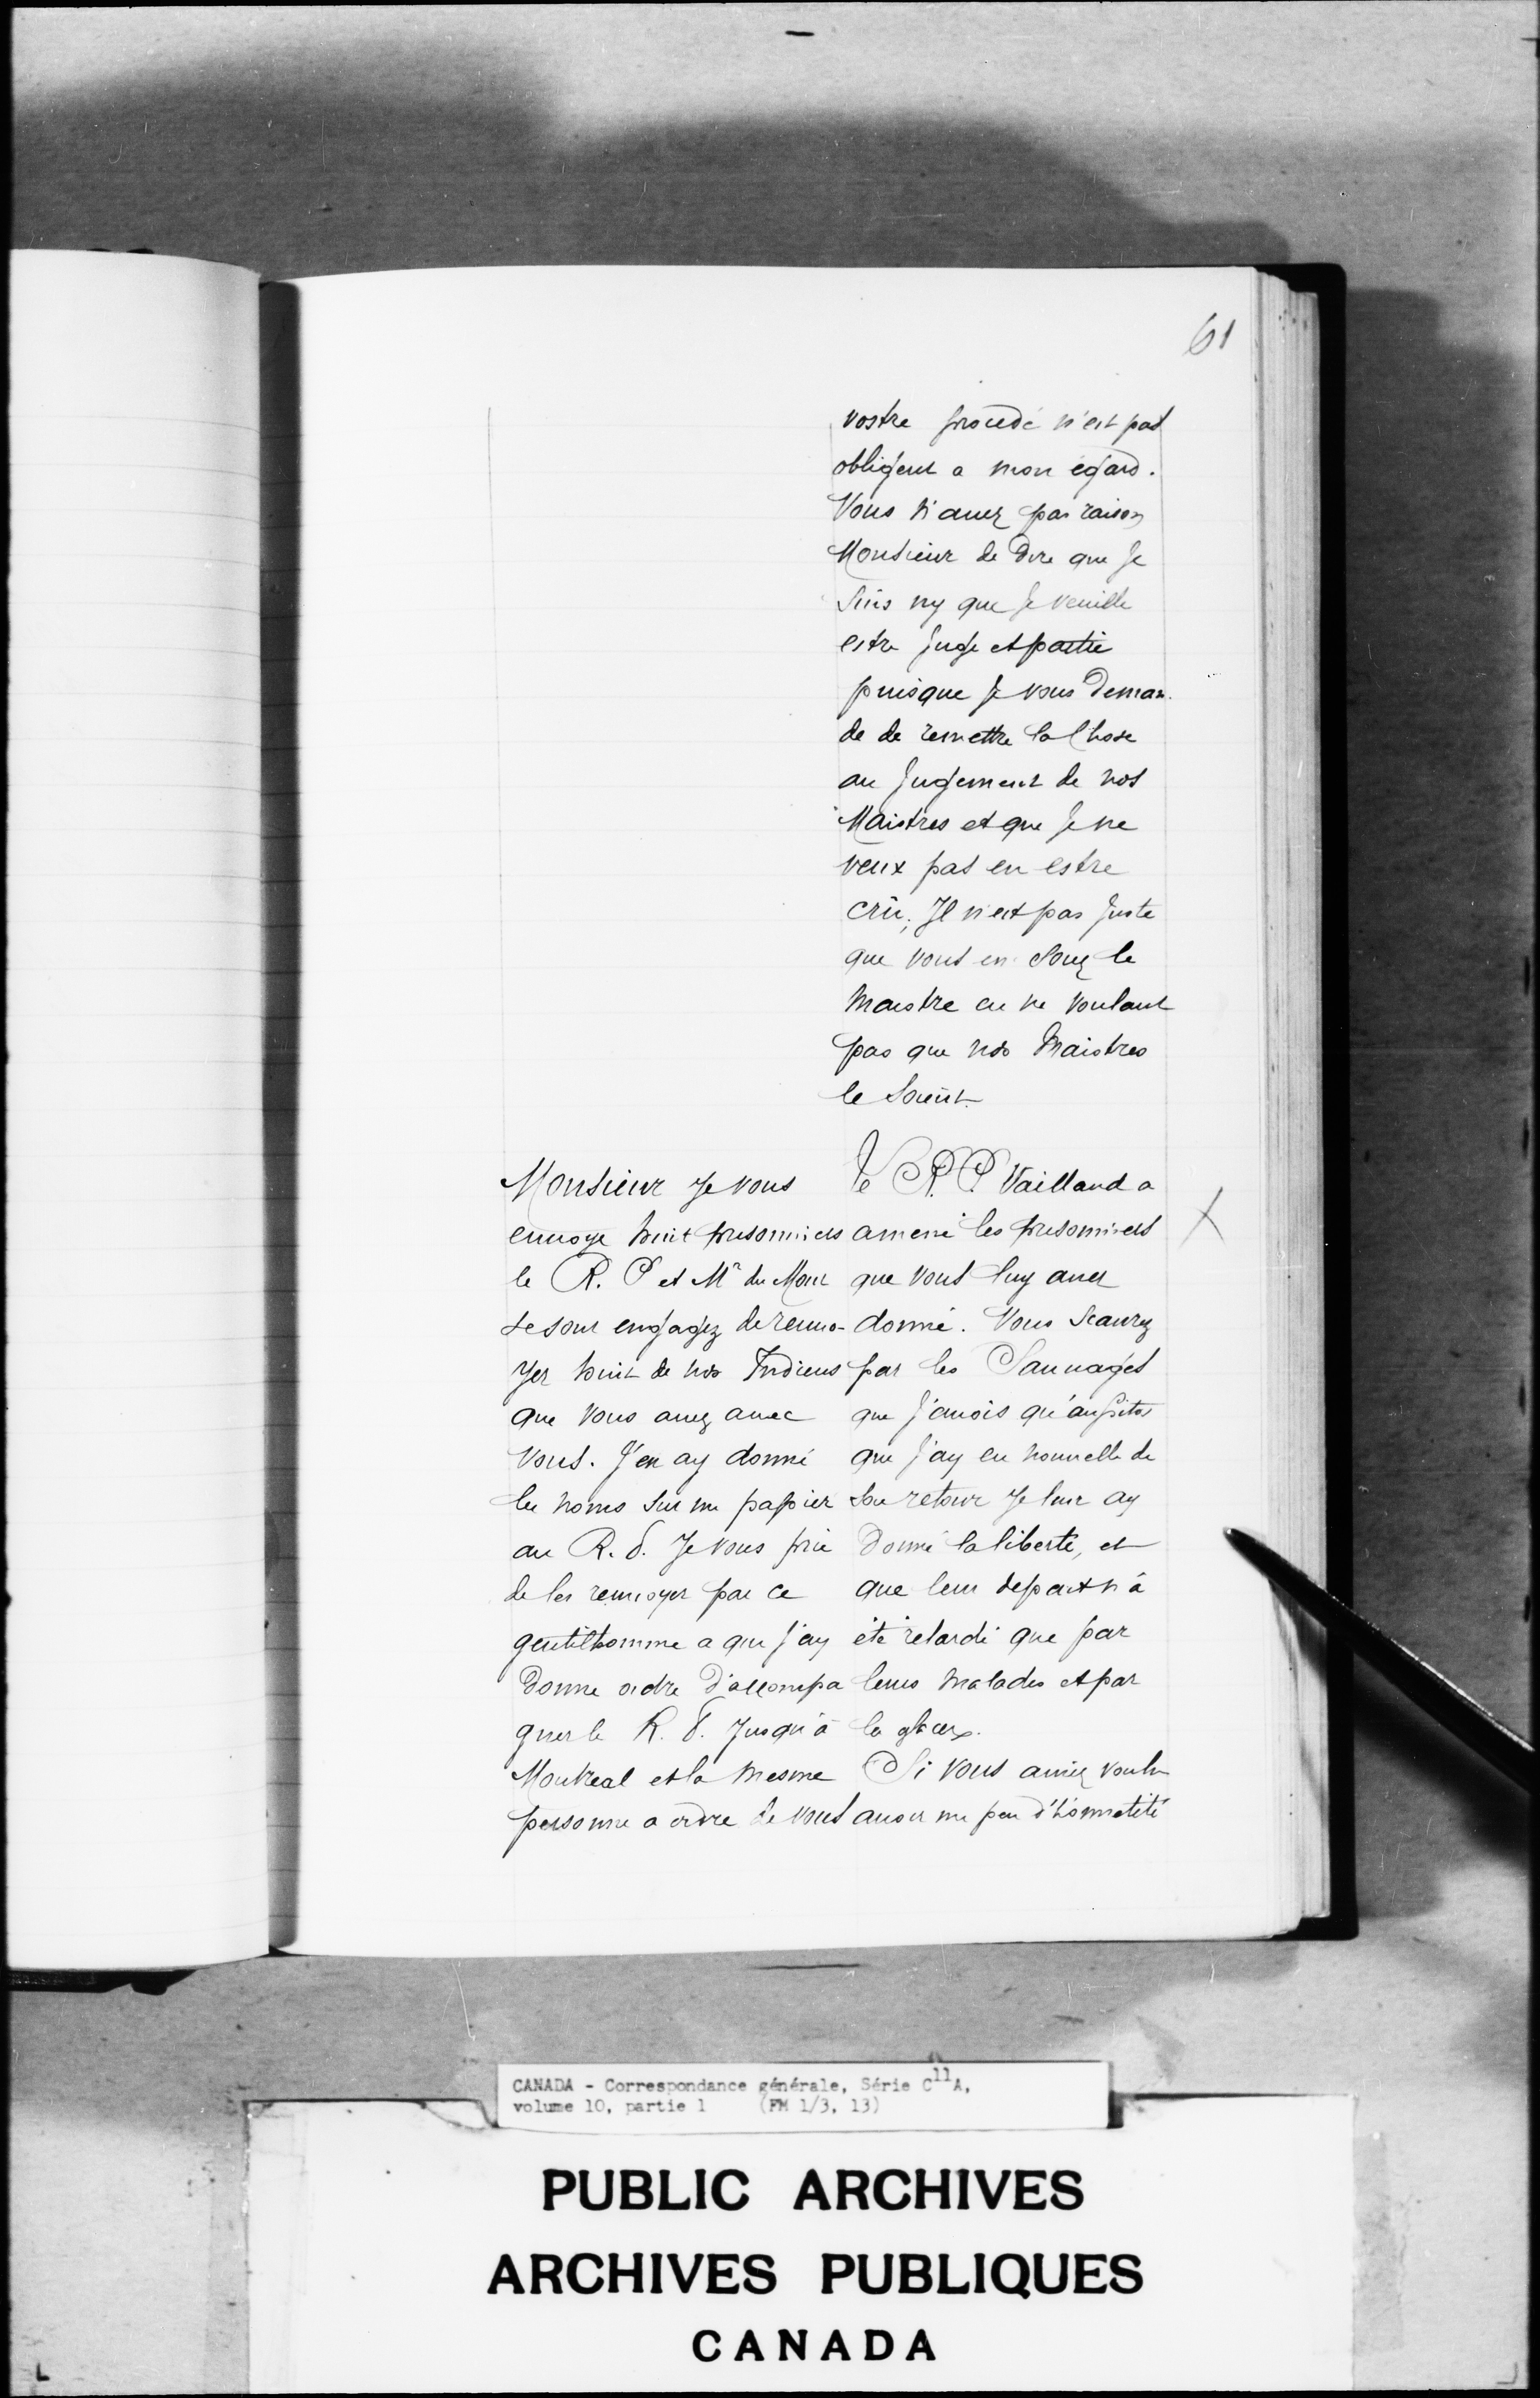 61
vostre procedé n'est pas
obligent a mon egard.
Vous n'auez pas raison
Monsieur de dire que Je
suis ny que Je veuille
estre Juge et partie
puisque Je vous deman-
de de remettre la Chose
au Jugement de nos
Maistres et que Je ne
veux pas en estre
crû; Il n'est pas Juste
que vous en Soyez le
maistre en ne voulant
pas que nos Maistres
le Soient.
Monsieur Je vous
enuoye huit prisonniers
le R. P et Mr du Mont
se sont engagez de renuo-
yer huit de nos Indiens
que vous auez auec
vous. J'en ay donné
les noms sur un papier
au R. P. Je vous prie
de les renuoyer par ce
gentilhomme a qui J'ay
donne ordre d'accompa
gner le R. P. Jusqu'à
Montreal et la mesme
personne a ordre de vous
Le R. P. Vailland a
amené les prisonniers
que vous luy auez
donné. Vous scaurez
par les Sauuages
que J'auois qu'aussitos
que J'ay eu nouuelle de
son retour Je leur ay
donné la liberté, et
que leur depart n'à
été retardé que par
leurs malades et par
les glaces.
Si vous auiez voulu
auoir un peu d'honnetité
X
CANADA - Correspondance générale, Série C11A,
volume 10, partie 1 (FM 1/3, 13)
PUBLIC ARCHIVES
ARCHIVES PUBLIQUES
CANADA